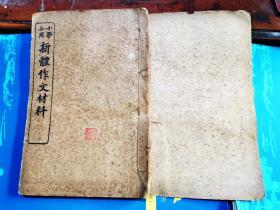 小學
必用
新體作文材料